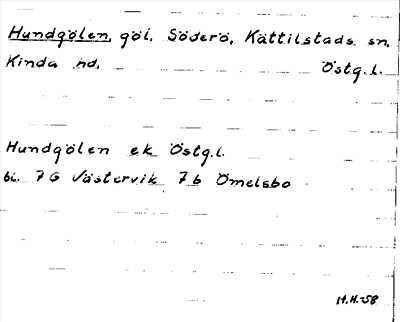 Hundgölen, göl, Söderö, Kättilstads sn,
Kinda hd. Östg.l.
Hundgölen ek Östg.l.
bl. 7G Västervik 7b Ömelsbo
H.H.-58